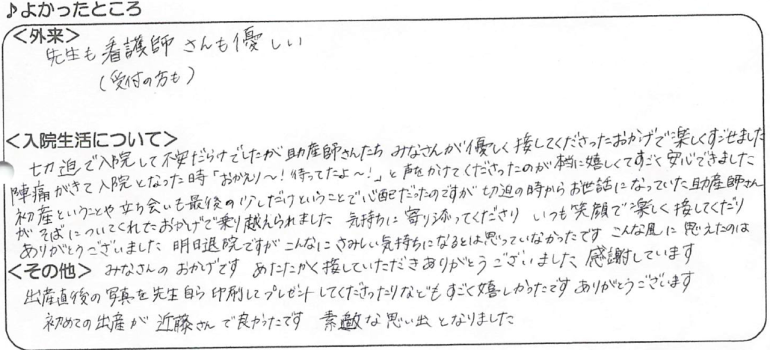 ♪よかったところ
<外来>
先生も看護師さんも優しい
(受付の方も)
<入院生活について>
切迫で入院して不安だらけでしたが助産師さんたち みなさんが優しく接してくださったおかげで楽しくすごせました
陣痛がきて入院となった時「おかえり〜!待ってたよ〜!」と声をかけてくださったのが本当に嬉しくてすごく安心できました
初産ということや立ち会いも最後の少しだけということで心配だったのですが切迫の時からお世話になっていた助産師さん
がそばについてくれたおかげで乗り越えられました 気持ちに寄り添ってくださり いつも笑顔で楽しく接してくださり
ありがとうございました 明日退院ですがこんなにさみしい気持ちになるとは思っていなかったです こんな風に思えたのは
<その他> みなさんのおかげです あたたかく接していただきありがとうございました 感謝しています
出産直後の写真を先生自ら印刷してプレゼントしてくださったりなどもすごく嬉しかったです ありがとうございます
初めての出産が近藤さんで良かったです 素敵な思い出となりました